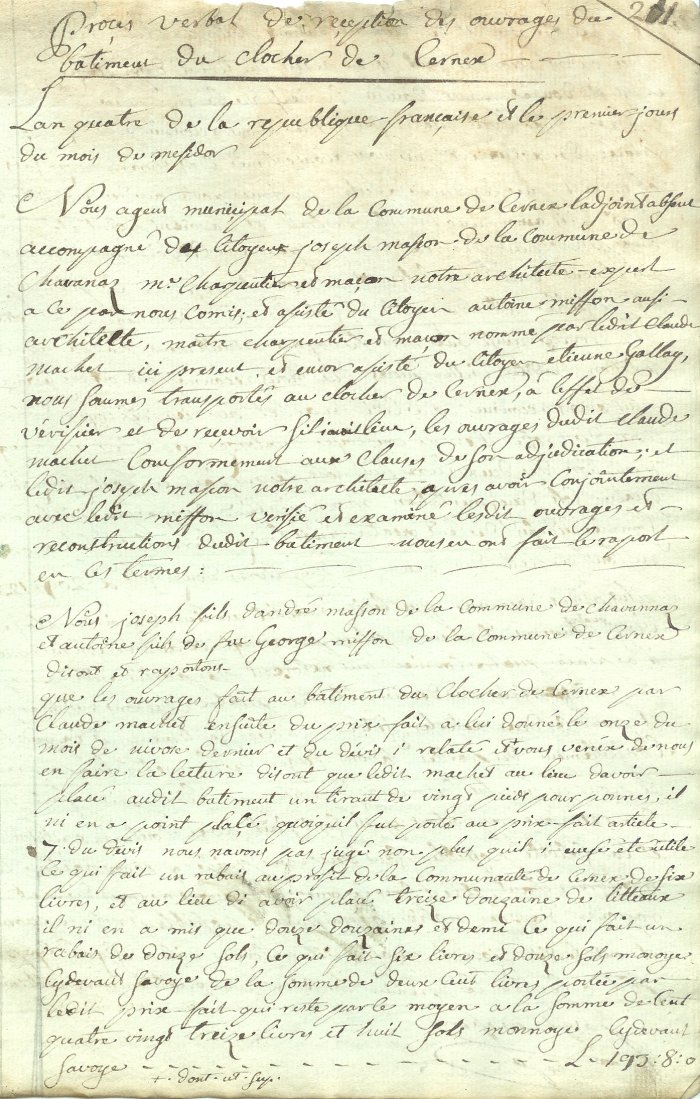 201.
Proçes verbal de reception des ouvrages du
bâtiment du Clocher de Cernex
Lan quatre de la republique française et le premier jours
du mois de mesidor
Nous agent municipal de la Commune de Cernex ladjoint absent
accompagné de Citoyen joseph masson de la Commune de
Chavanaz me. Charpentier et maçon notre architecte expert
a ce par nous Comis; et asisté du Citoyen antoine misson ausi
architecte, maître charpentier et maçon nommé par ledit Claude
machet ici present, et encor asisté du Citoyen etienne Gallay,
nous somes transportés au clocher de Cernex, à leffet de
vérifier et de recevoir sil i avait lieu, les ouvrages dudit Claude
machet Conformement aux Clauses de son adjudication; et
ledit joseph masson notre architecte, apres avoir Conjointement
avec ledit misson verifié et examiné lesdit ouvrages et
reconstructions dudit bâtiment nous en ont fait le raport
en ces termes:
Nous joseph fils dandré masson de la Commune de Chavannaz
et antoine fils de feu George misson de la Commune de Cernex
disont et raportons
que les ouvrages fait au bâtiment du Clocher de Cernex par
Claude machet ensuite du prix fait a lui donné le onze du
mois de nivose dernier et du dévis i relaté et vous venéx de nous
en faire la lecture disont que ledit machet au lieu davoir
placé audit bâtiment un tirant de vingt pieds pour pounes, il
ni en a point placé quoiquil fut porté au prix-fait article
7. du devis nous navons pas jugé non plus quil i eusse été utile
Ce qui fait un rabais au profit de la Communauté de Cernex de six
livres, et au lieu di avoir placé treize douzaine de litteaux
il ni en a mis que douze douzaines et demi Ce qui fait un
rabais de douze sols, Ce qui fait six livres et douze sols monoye
Cydevant Savoye de la somme de deux Cent livres portée par
ledit prix-fait qui reste par le moyen a la somme de Cent
quatre vingt treize livres et huit sols monnoye Cydevant
Savoye L. 193:8:0
+. dont ut sup.